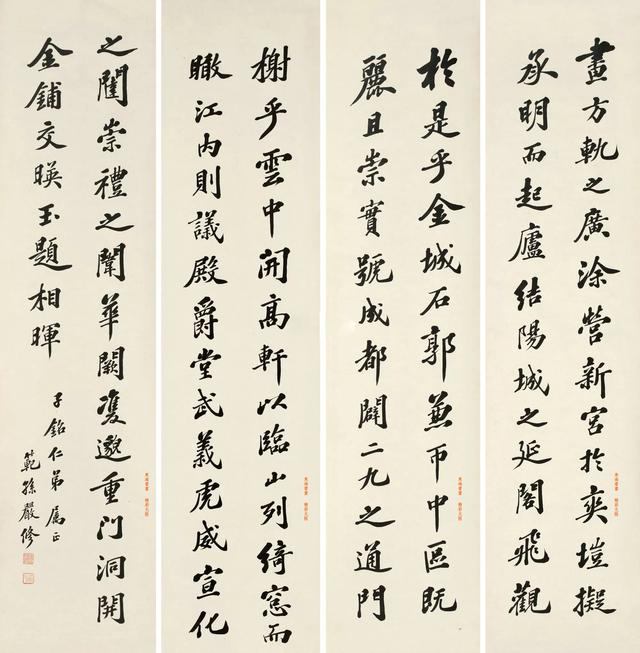 畫方軌之廣涂營新宮於爽塏擬
承明而起廬結陽城之延閣飛觀
於是乎金城石郭兼帀中區既
麗且崇實號成都闢二九之通門
榭乎雲中開高軒以臨山列綺窓而
瞰江內則議殿爵堂武義虎威宣化
之闥崇禮之闈華闕雙邈重門洞開
金鋪交暎玉題相暉
子鉊仁弟屬正
範孫嚴修